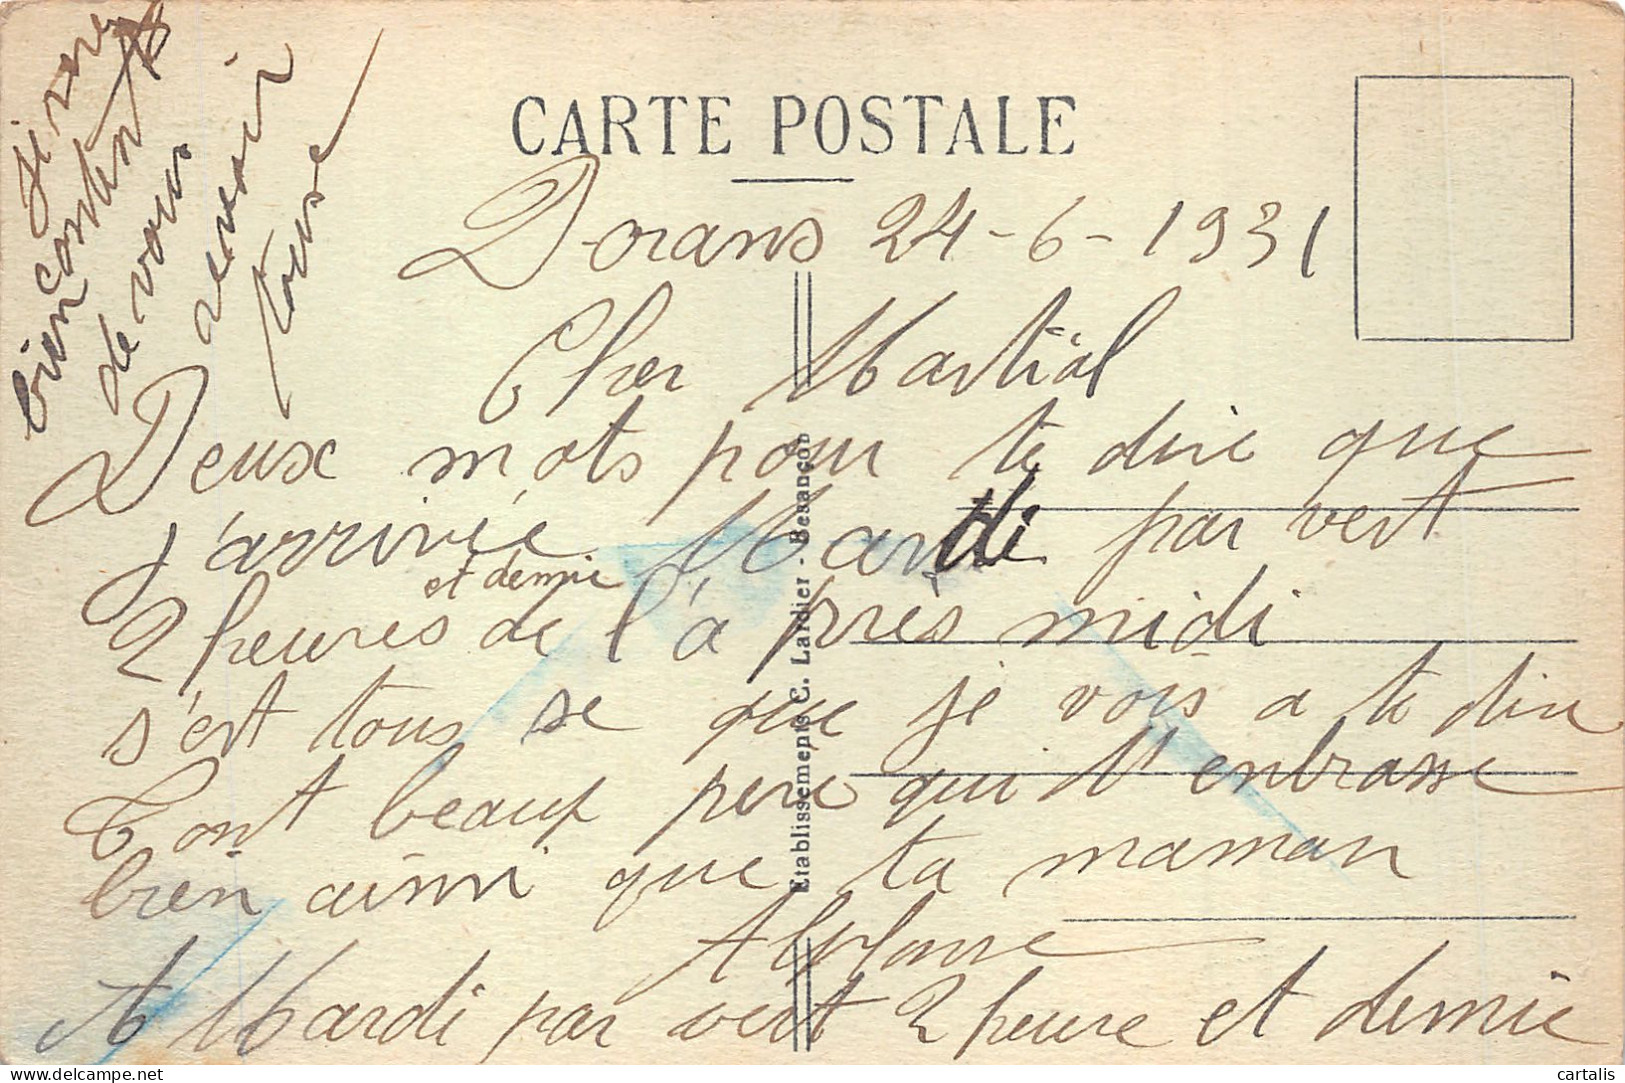 CARTE POSTALE
Dorans 24-6-1931
Cher Martial
Deux mots pour te dire que
j'arrivée Mardi par vert
et demie
2 heures de l'à près midi
s'est tous se que je vois a te dire
Tont beaux pere qui t'enbrasse
bien ainsi que ta maman
Alphonse
A Mardi par vert 2 heure et demie
Je sui
bien contens
de vous
revoir
tous
Etablissements C. Lardier - Besançon
delcampe.net
cartalis